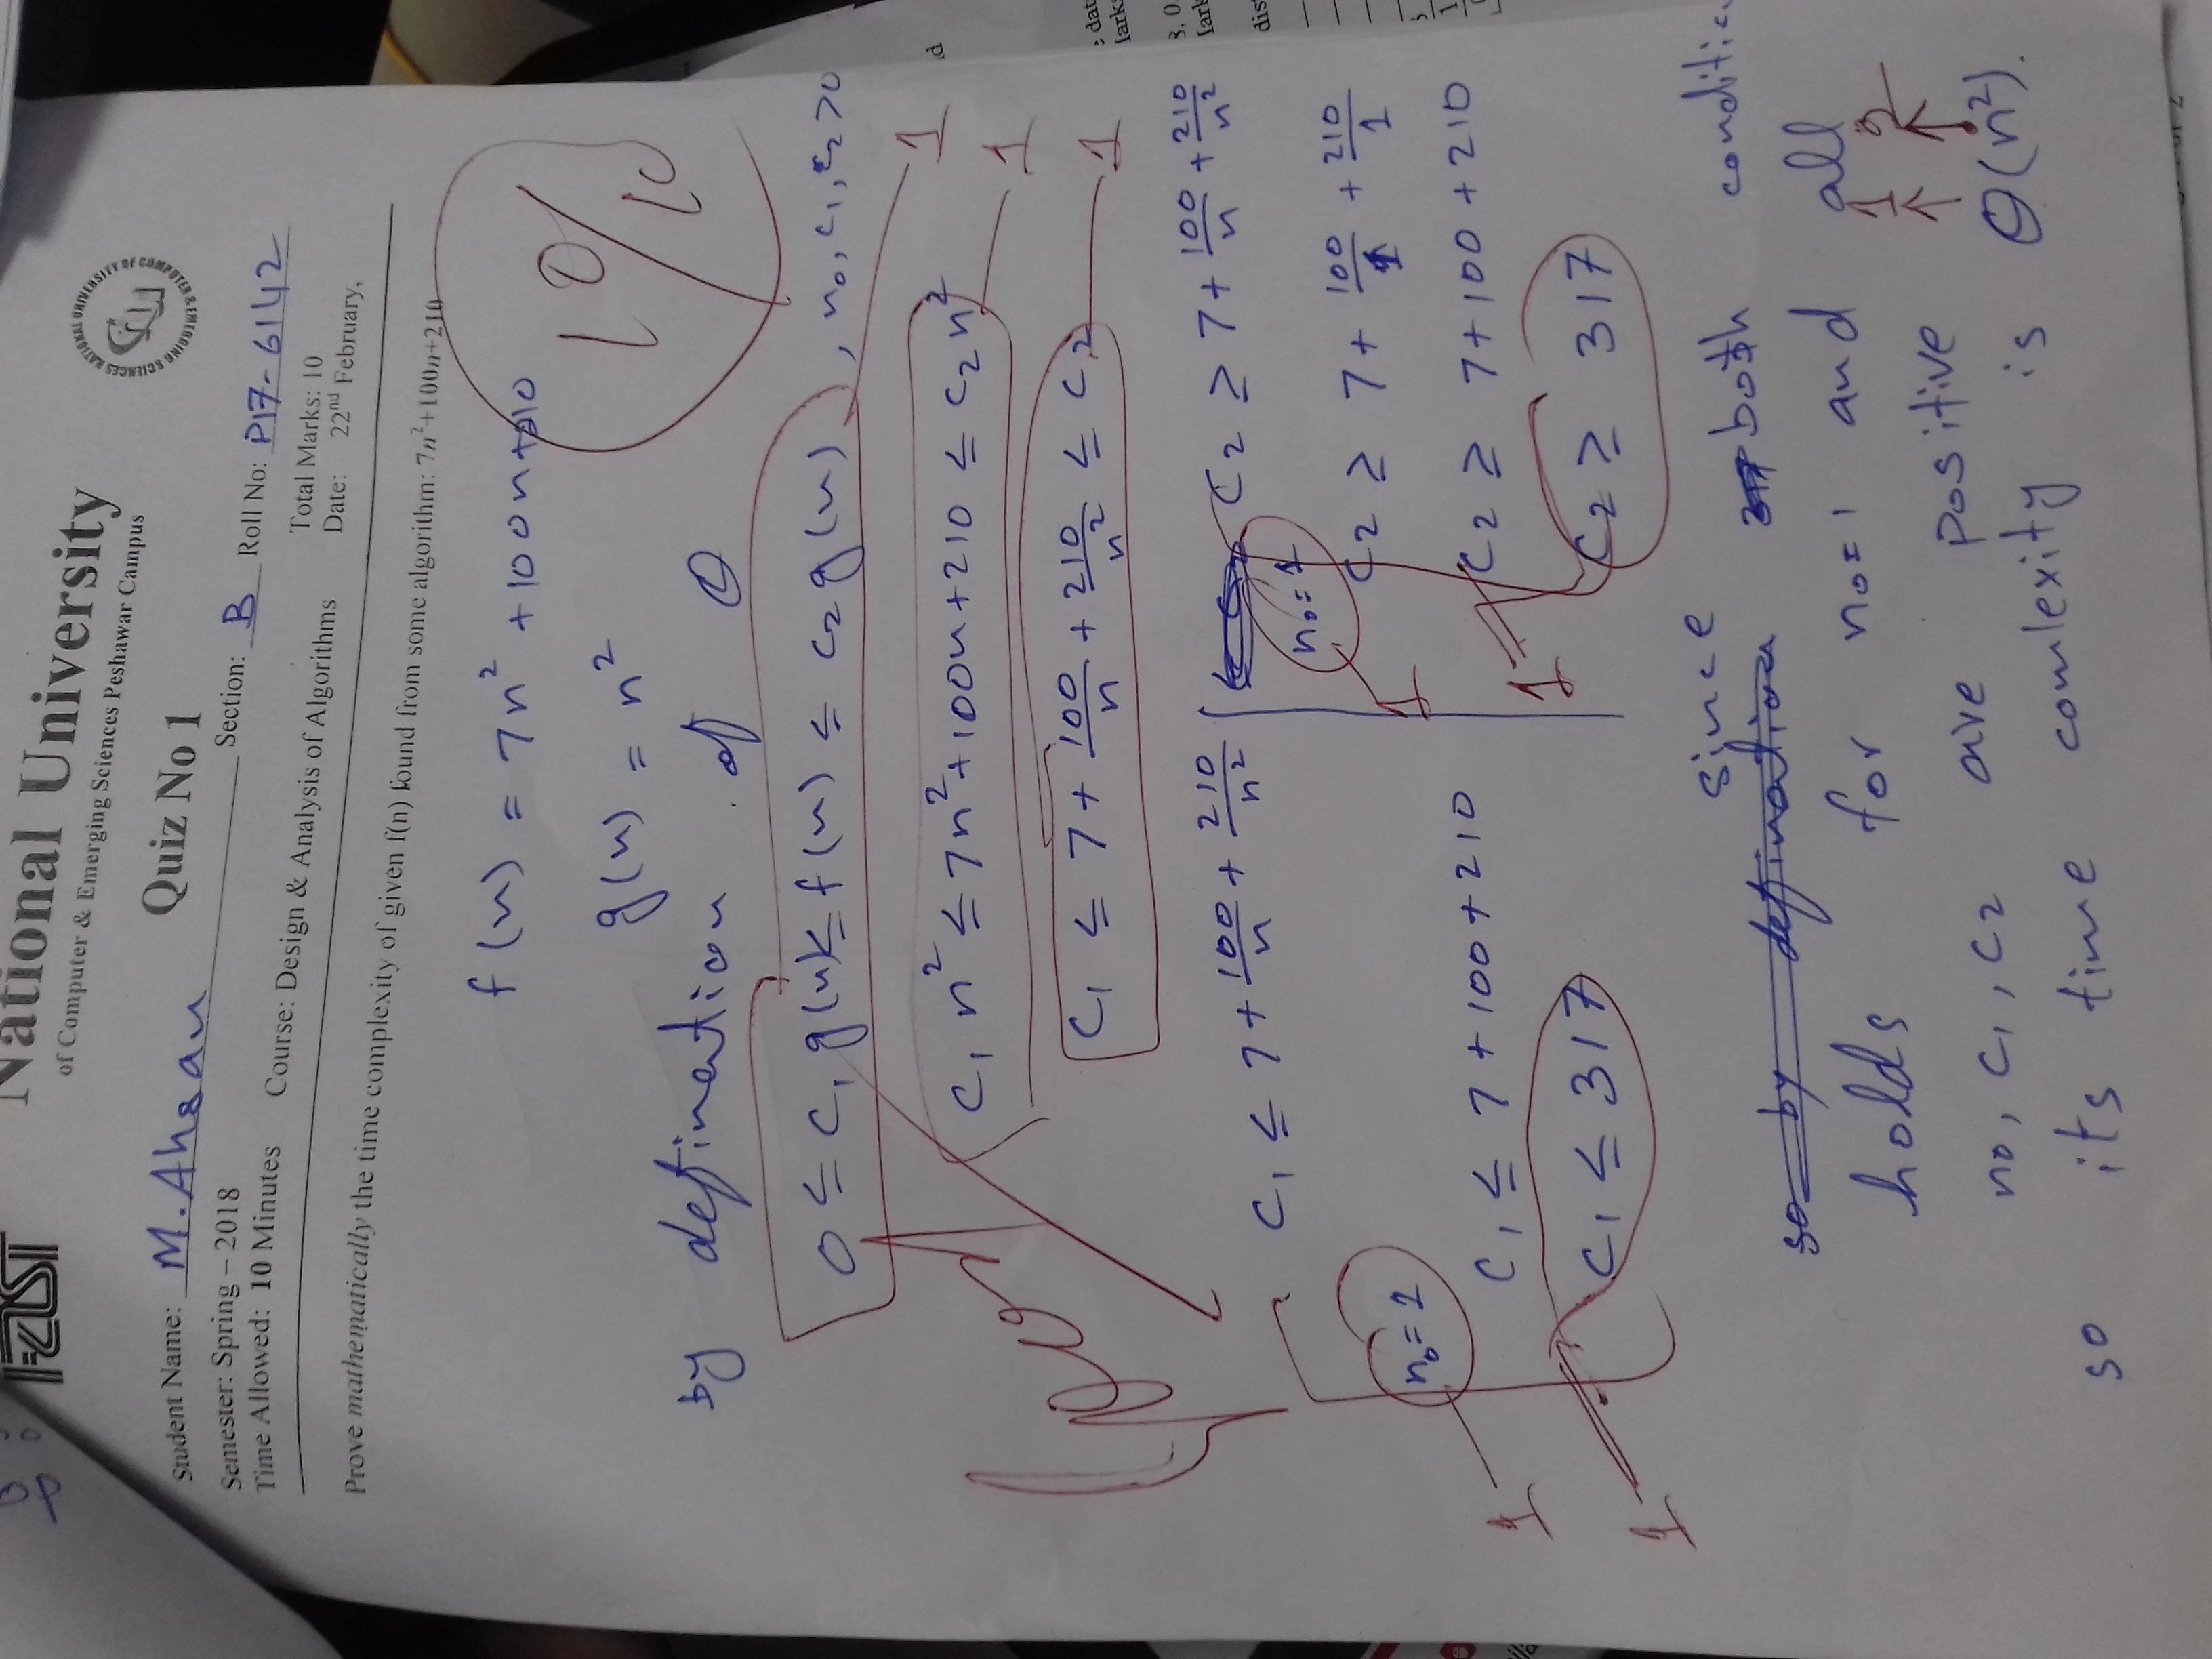 FAST
National University
of Computer & Emerging Sciences Peshawar Campus
NATIONAL UNIVERSITY OF COMPUTER & EMERGING SCIENCES
Quiz No 1
Student Name: M. Ahsan
Section: B Roll No: P17-6142
Semester: Spring – 2018
Total Marks: 10
Time Allowed: 10 Minutes Course: Design & Analysis of Algorithms
Date: 22nd February,
Prove mathematically the time complexity of given f(n) found from some algorithm: 7n²+100n+210
f(n) = 7n² + 100n+210
10/10
g(n) = n²
by defination of θ
0 ≤ c₁ g(n) ≤ f(n) ≤ c₂ g(n) , n₀, c₁, c₂ >0
1
Good
c₁ n² ≤ 7n²+100n+210 ≤ c₂ n²
1
c₁ ≤ 7 + 100/n + 210/n² ≤ c₂
1
c₁ ≤ 7 + 100/n + 210/n²
n₀ = 1
1
c₁ ≤ 7 + 100 + 210
c₁ ≤ 317
1
c₂ ≥ 7 + 100/n + 210/n²
n₀ = 1
1
c₂ ≥ 7 + 100/1 + 210/1
c₂ ≥ 7+100 +210
1
c₂ ≥ 317
since
so by defination both conditio
holds for n₀=1 and all
1 2
n₀, c₁, c₂ are positive
so its time comlexity is θ(n²).